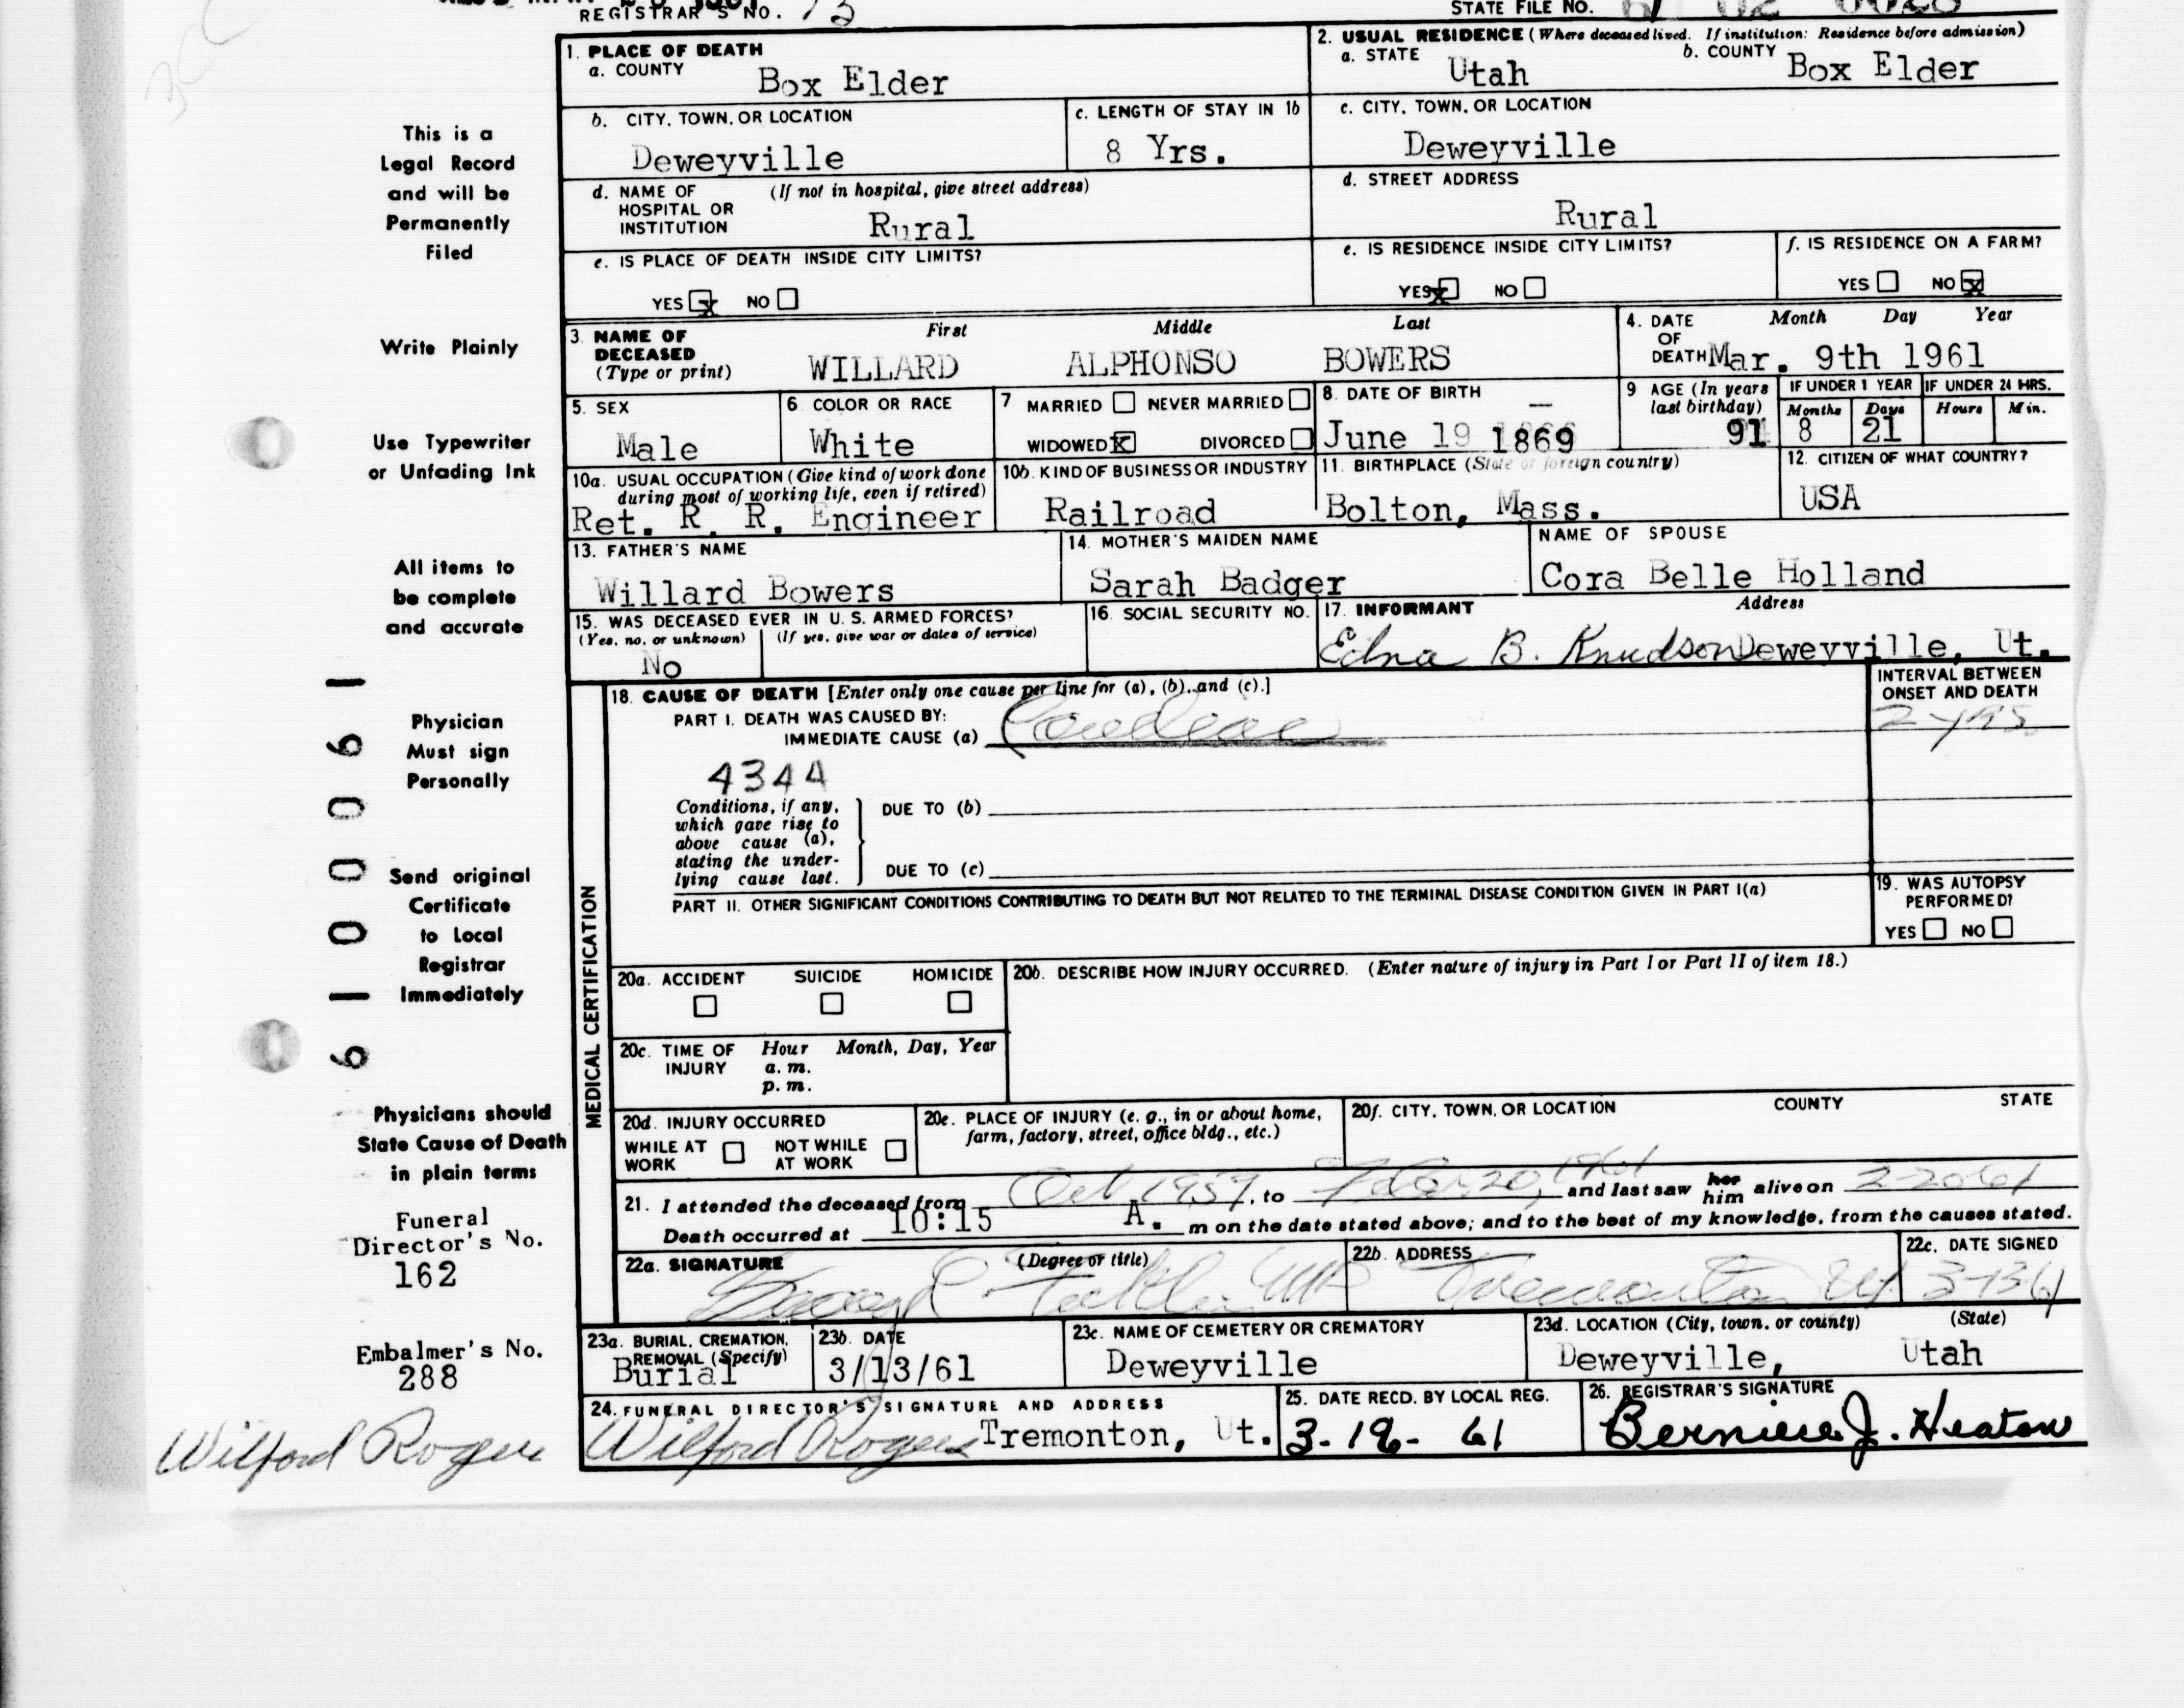 REGISTRAR'S NO. 13
STATE FILE NO. 61 02 0028
1. PLACE OF DEATH
a. COUNTY Box Elder
2. USUAL RESIDENCE (Where deceased lived. If institution: Residence before admission)
a. STATE Utah b. COUNTY Box Elder
b. CITY, TOWN, OR LOCATION Deweyville
c. LENGTH OF STAY IN 1b 8 Yrs.
c. CITY, TOWN, OR LOCATION Deweyville
d. NAME OF HOSPITAL OR INSTITUTION (If not in hospital, give street address) Rural
d. STREET ADDRESS Rural
e. IS PLACE OF DEATH INSIDE CITY LIMITS?
YES x NO
e. IS RESIDENCE INSIDE CITY LIMITS?
YES x NO
f. IS RESIDENCE ON A FARM?
YES NO x
3. NAME OF DECEASED (Type or print)
First Middle Last
WILLARD ALPHONSO BOWERS
4. DATE OF DEATH Month Day Year
Mar. 9th 1961
5. SEX Male
6. COLOR OR RACE White
7 MARRIED NEVER MARRIED
WIDOWED X DIVORCED
8. DATE OF BIRTH June 19 1869
9 AGE (In years last birthday) 91
IF UNDER 1 YEAR Months 8 Days 21
IF UNDER 24 HRS. Hours Min.
10a. USUAL OCCUPATION (Give kind of work done during most of working life, even if retired)
Ret. R. R. Engineer
10b. KIND OF BUSINESS OR INDUSTRY Railroad
11. BIRTHPLACE (State or foreign country) Bolton, Mass.
12. CITIZEN OF WHAT COUNTRY? USA
13. FATHER'S NAME Willard Bowers
14. MOTHER'S MAIDEN NAME Sarah Badger
NAME OF SPOUSE Cora Belle Holland
15. WAS DECEASED EVER IN U. S. ARMED FORCES?
(Yes, no, or unknown) (If yes, give war or dates of service)
No
16. SOCIAL SECURITY NO.
17. INFORMANT Address
Edna B. Knudson Deweyville, Ut.
MEDICAL CERTIFICATION
18. CAUSE OF DEATH [Enter only one cause per line for (a), (b), and (c).]
PART I. DEATH WAS CAUSED BY:
IMMEDIATE CAUSE (a) Cardiac
INTERVAL BETWEEN ONSET AND DEATH
2 yrs
4344
Conditions, if any, which gave rise to above cause (a), stating the underlying cause last.
DUE TO (b)
DUE TO (c)
PART II. OTHER SIGNIFICANT CONDITIONS CONTRIBUTING TO DEATH BUT NOT RELATED TO THE TERMINAL DISEASE CONDITION GIVEN IN PART I(a)
19. WAS AUTOPSY PERFORMED?
YES NO
20a. ACCIDENT SUICIDE HOMICIDE
20b. DESCRIBE HOW INJURY OCCURRED. (Enter nature of injury in Part I or Part II of item 18.)
20c. TIME OF INJURY Hour Month, Day, Year
a. m.
p. m.
20d. INJURY OCCURRED
WHILE AT WORK NOT WHILE AT WORK
20e. PLACE OF INJURY (e. g., in or about home, farm, factory, street, office bldg., etc.)
20f. CITY, TOWN, OR LOCATION COUNTY STATE
21. I attended the deceased from Oct 1959, to Feb 20, 1961 and last saw her him alive on 2-20-61
Death occurred at 10:15 A. m on the date stated above; and to the best of my knowledge, from the causes stated.
22a. SIGNATURE (Degree or title) MD
22b. ADDRESS Tremonton Ut.
22c. DATE SIGNED 3-13-61
23a. BURIAL, CREMATION, REMOVAL (Specify) Burial
23b. DATE 3/13/61
23c. NAME OF CEMETERY OR CREMATORY Deweyville
23d. LOCATION (City, town, or county) (State)
Deweyville, Utah
24. FUNERAL DIRECTOR'S SIGNATURE AND ADDRESS
Wilford Rogers Tremonton, Ut.
25. DATE RECD. BY LOCAL REG.
26. REGISTRAR'S SIGNATURE
Berniece J. Heaton
This is a
Legal Record
and will be
Permanently
Filed
Write Plainly
Use Typewriter
or Unfading Ink
All items to
be complete
and accurate
Physician
Must sign
Personally
Send original
Certificate
to Local
Registrar
Immediately
Physicians should
State Cause of Death
in plain terms
Funeral
Director's No.
162
Embalmer's No.
288
Wilford Rogers
6 1 0 0 6 1